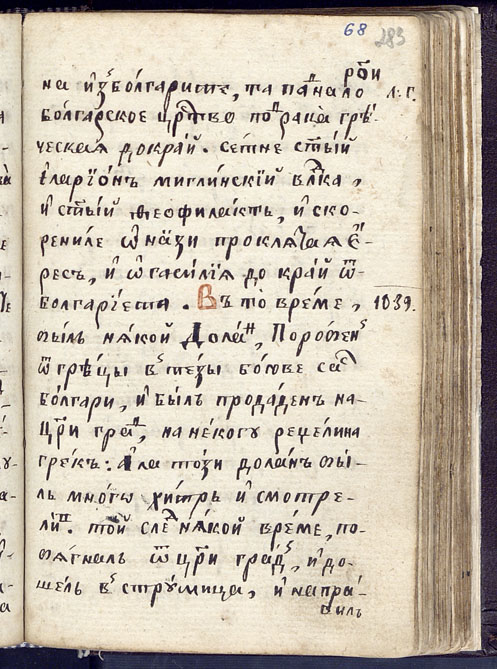 68 283
рои
на и҆ꙁболгарите, та паⷣнало л: г.
болгарское црⷭ҇тво поⷣ рака̀ грѣ-
ческая докрай. сетне ст҃ый
і҆ларїонъ миглинскїй влⷣка,
и҆ ст҃ый ѳеофилактъ, и҆ ско-
рениле ѡ҆наꙁи проклятая є҆-
ресъ, и҆ ѡ҆гасилїя до край ѿ
болгарїета. Въ то̀ време, 1039.
былъ някой Долаⷩ, Поробенⸯ
ѿ грѣцы вⸯ теꙁы боюве саⷭ
болгари, и҆ былъ продаденъ на-
цр҃и граⷣ, на некогу
грекъ: а҆ла тоꙁи доланъ бы-
лъ многѡ хитръ и҆ смотре-
ли. той слеⷣ някой време, по-
бягналъ ѿ цр҃и градⸯ, и҆ до-
шелъ вⸯ струмица, и҆ напра-
вилъ